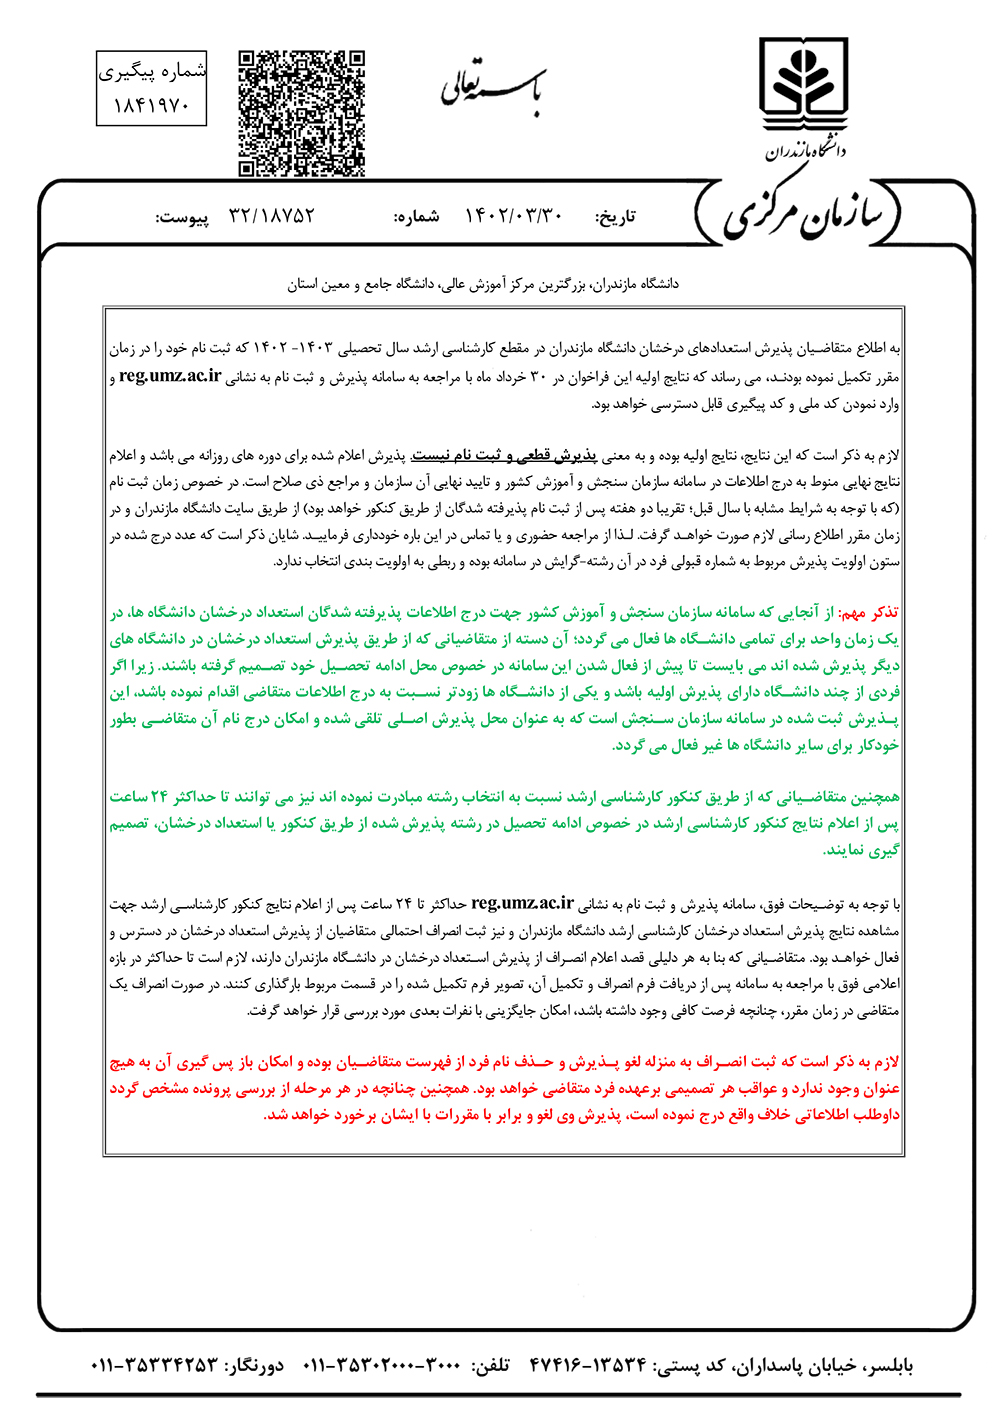 شماره پیگیری
۱۸۴۱۹۷۰
باسمه تعالی
دانشگاه مازندران
سازمان مرکزی
تاریخ: ۱۴۰۲/۰۳/۳۰ شماره: ۳۲/۱۸۷۵۲ پیوست:
دانشگاه مازندران، بزرگترین مرکز آموزش عالی، دانشگاه جامع و معین استان
به اطلاع متقاضیان پذیرش استعدادهای درخشان دانشگاه مازندران در مقطع کارشناسی ارشد سال تحصیلی ۱۴۰۳- ۱۴۰۲ که ثبت نام خود را در زمان
مقرر تکمیل نموده بودند، می رساند که نتایج اولیه این فراخوان در ۳۰ خرداد ماه با مراجعه به سامانه پذیرش و ثبت نام به نشانی reg.umz.ac.ir و
وارد نمودن کد ملی و کد پیگیری قابل دسترسی خواهد بود.
لازم به ذکر است که این نتایج، نتایج اولیه بوده و به معنی پذیرش قطعی و ثبت نام نیست. پذیرش اعلام شده برای دوره های روزانه می باشد و اعلام
نتایج نهایی منوط به درج اطلاعات در سامانه سازمان سنجش و آموزش کشور و تایید نهایی آن سازمان و مراجع ذی صلاح است. در خصوص زمان ثبت نام
(که با توجه به شرایط مشابه با سال قبل؛ تقریبا دو هفته پس از ثبت نام پذیرفته شدگان از طریق کنکور خواهد بود) از طریق سایت دانشگاه مازندران و در
زمان مقرر اطلاع رسانی لازم صورت خواهد گرفت. لذا از مراجعه حضوری و یا تماس در این باره خودداری فرمایید. شایان ذکر است که عدد درج شده در
ستون اولویت پذیرش مربوط به شماره قبولی فرد در آن رشته-گرایش در سامانه بوده و ربطی به اولویت بندی انتخاب ندارد.
تذکر مهم: از آنجایی که سامانه سازمان سنجش و آموزش کشور جهت درج اطلاعات پذیرفته شدگان استعداد درخشان دانشگاه ها، در
یک زمان واحد برای تمامی دانشگاه ها فعال می گردد؛ آن دسته از متقاضیانی که از طریق پذیرش استعداد درخشان در دانشگاه های
دیگر پذیرش شده اند می بایست تا پیش از فعال شدن این سامانه در خصوص محل ادامه تحصیل خود تصمیم گرفته باشند. زیرا اگر
فردی از چند دانشگاه دارای پذیرش اولیه باشد و یکی از دانشگاه ها زودتر نسبت به درج اطلاعات متقاضی اقدام نموده باشد، این
پذیرش ثبت شده در سامانه سازمان سنجش است که به عنوان محل پذیرش اصلی تلقی شده و امکان درج نام آن متقاضی بطور
خودکار برای سایر دانشگاه ها غیر فعال می گردد.
همچنین متقاضیانی که از طریق کنکور کارشناسی ارشد نسبت به انتخاب رشته مبادرت نموده اند نیز می توانند تا حداکثر ۲۴ ساعت
پس از اعلام نتایج کنکور کارشناسی ارشد در خصوص ادامه تحصیل در رشته پذیرش شده از طریق کنکور یا استعداد درخشان، تصمیم
گیری نمایند.
با توجه به توضیحات فوق، سامانه پذیرش و ثبت نام به نشانی reg.umz.ac.ir حداکثر تا ۲۴ ساعت پس از اعلام نتایج کنکور کارشناسی ارشد جهت
مشاهده نتایج پذیرش استعداد درخشان کارشناسی ارشد دانشگاه مازندران و نیز ثبت انصراف احتمالی متقاضیان از پذیرش استعداد درخشان در دسترس و
فعال خواهد بود. متقاضیانی که بنا به هر دلیلی قصد اعلام انصراف از پذیرش استعداد درخشان در دانشگاه مازندران دارند، لازم است تا حداکثر در بازه
اعلامی فوق با مراجعه به سامانه پس از دریافت فرم انصراف و تکمیل آن، تصویر فرم تکمیل شده را در قسمت مربوط بارگذاری کنند. در صورت انصراف یک
متقاضی در زمان مقرر، چنانچه فرصت کافی وجود داشته باشد، امکان جایگزینی با نفرات بعدی مورد بررسی قرار خواهد گرفت.
لازم به ذکر است که ثبت انصراف به منزله لغو پذیرش و حذف نام فرد از فهرست متقاضیان بوده و امکان باز پس گیری آن به هیچ
عنوان وجود ندارد و عواقب هر تصمیمی برعهده فرد متقاضی خواهد بود. همچنین چنانچه در هر مرحله از بررسی پرونده مشخص گردد
داوطلب اطلاعاتی خلاف واقع درج نموده است، پذیرش وی لغو و برابر با مقررات با ایشان برخورد خواهد شد.
بابلسر، خیابان پاسداران، کد پستی: ۱۳۵۳۴-۴۷۴۱۶ تلفن: ۳۰۰۰-۳۵۳۰۲۰۰۰-۰۱۱ دورنگار: ۳۵۳۳۴۲۵۳-۰۱۱